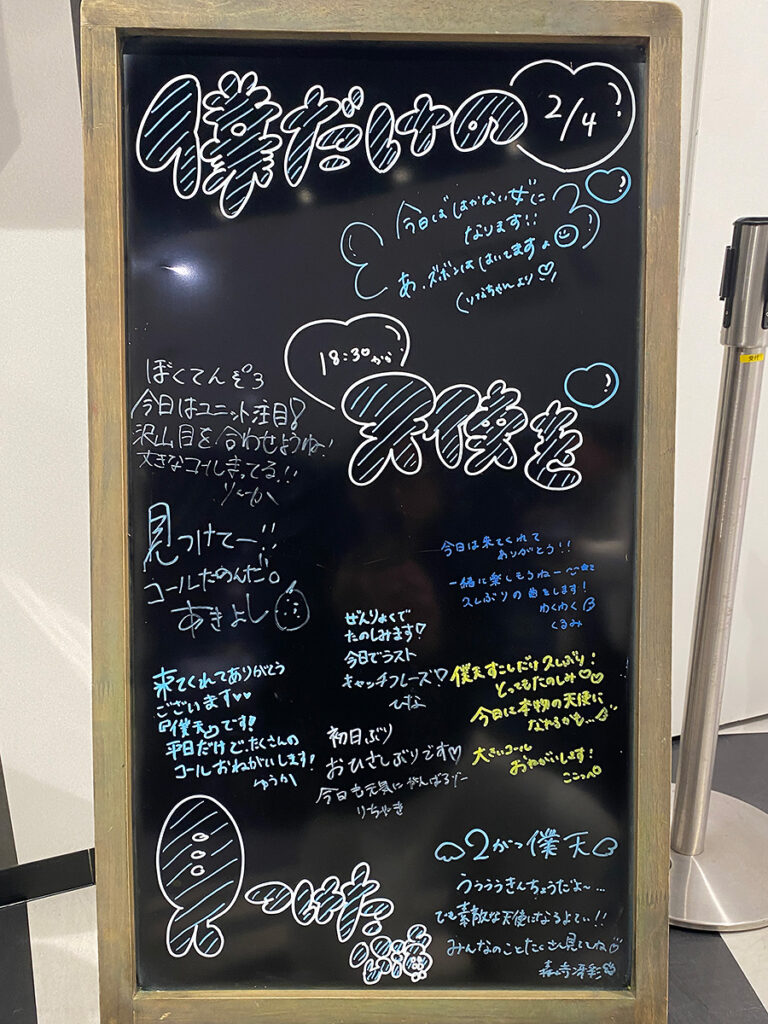 僕だけの
2/4
今日ははかない女に
なります!!
あ、ズボンははいてますよ
(りなちゃんより♡)
18:30から
天使を
ぼくてんぞ3
今日はユニット注目!
沢山目を合わせようね!
大きなコールまってる!!
りーか
見つけてー!!
コールたのんだ。
あきよし
今日は来てくれて
ありがとう!!
一緒に楽しもうねー
久しぶりの曲もします!
わくわく
くるみ
ぜんりょくで
たのしみます♡
今日でラスト
キャッチフレーズ!♡
ひな
僕天すこしだけ久しぶり!
とってもたのしみ♡♡
今日は本物の天使に
なれるかも…
大きいコール
おねがいします!
ここっぺ
来てくれてありがとう
ございます♡♡
『僕天』です!
平日だけど、たくさんの
コールおねがいします!
ゆうか
初日ぶり
おひさしぶりです♡
今日も元気にがんばるぞー
りちゃき
見つけた
公演
2がつ僕天
うぅぅぅきんちょうだよ〜…
でも素敵な天使になるよてい!!
みんなのことたくさん見ててね